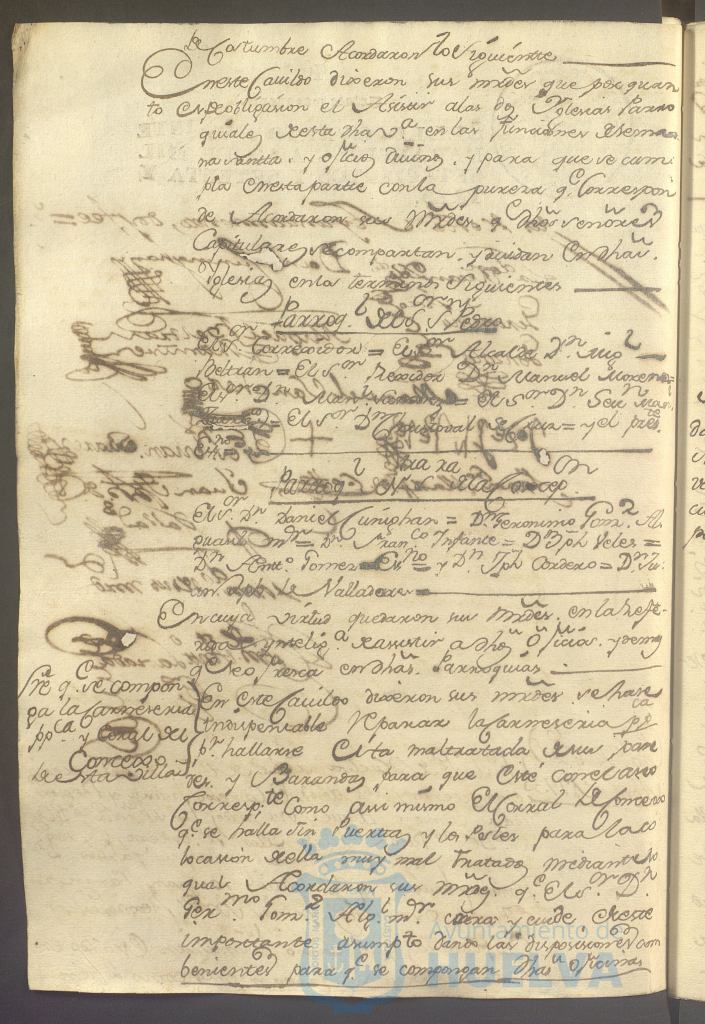 de Costumbre Acordaron lo Siguiente
En este Cavildo dixeron sus mrdes que por quan
to es de obligasion el Asistir a las dos Yglesias Parro
quiales desta dha va en las funciones de sema
na santta, y oficios divinos, y para que se cum
pla en esta parte con la pureza qe Correspon
de Acordaron sus Mrdes qe dhos señores
Capitulares se compartan y dividan En dhas
Yglesias en los terminos siguientes
Parroql del Sr Sn Pedro
El Sr Correxidor = El Sr Alcalde Dn Migl
Beltran = El Sor Rexidor Dn Manuel Moreno =
El Sr Dn
= El Sor Dn = y el preste
Essno
Parroql de Na Sra de la Concepon
El Sr Dn Daniel Cuniphan = Dn Geronimo Tom2 Al
guasil mor = Dn Franco Infante = Dn Jph Veles =
Dn Anto Gomes = y Dn Jph Cordero = Dn Ju
de Valladares
En cuya virtud quedaron sus Mrdes en la refe
rida de assistir a dhos oficios y demas
qe se ofresca en dhas Parroquias
Pre qe se compon
ga la Carneseria
ppca y Corral del
Consejo
de esta Villa
En este Cavildo dixeron sus mrdes se hase
indispensable Reparar la Carneseria pca
pr hallarse Esta maltratada de sus pare
des y Barandas para que Esté con el aseo
Correspte Como asi mismo El Corral de Consejo
qe se halla sin Puertas y los Postes para la co
locasion de ella muy mal tratados mediante lo
qual Acordaron sus Mrdes qe El Sr Dn
Germo Tom2 Algl mor corra y cuide de este
importante asumpto dando las disposisiones com
benientes para qe se compongan dhas oficinas
Ayuntamiento de
HUELVA